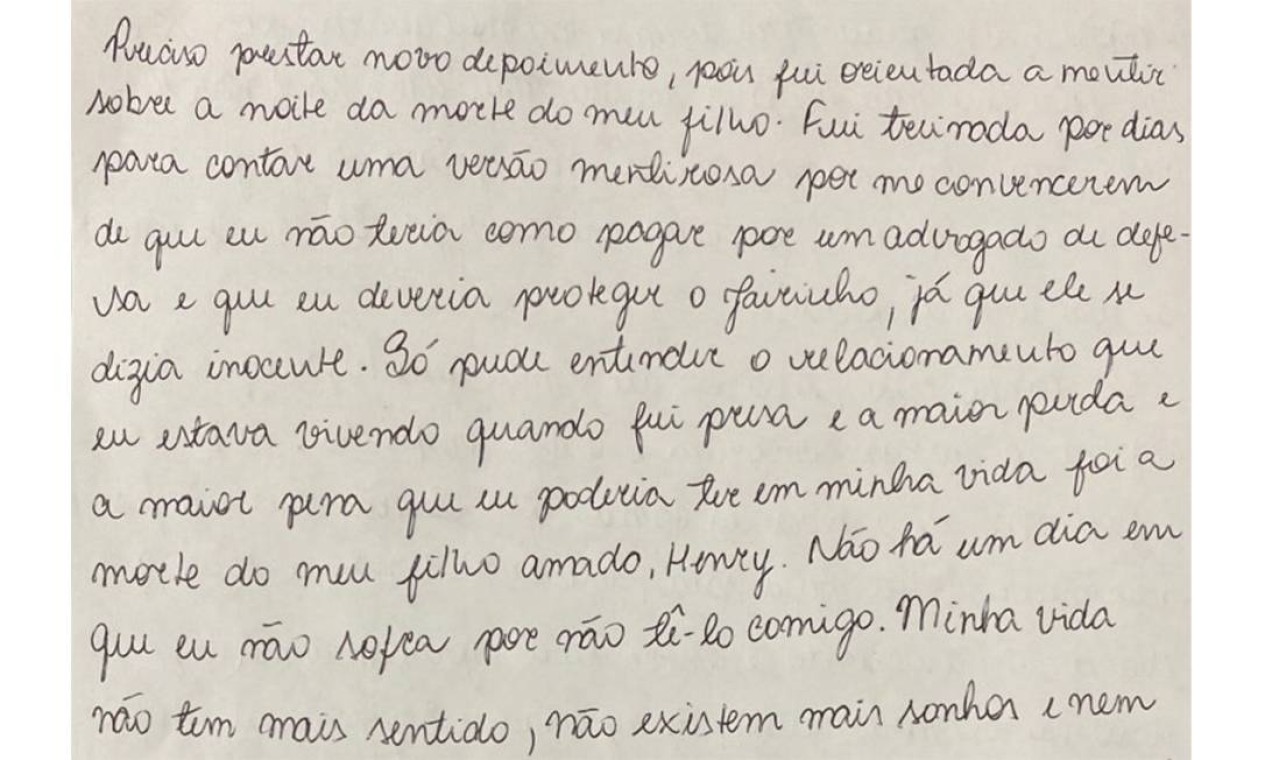 Preciso prestar novo depoimento, pois fui orientada a mentir
sobre a noite da morte do meu filho. Fui treinada por dias
para contar uma versão mentirosa por me convencerem
de que eu não teria como pagar por um advogado de defe-
sa e que eu deveria proteger o Jairinho, já que ele se
dizia inocente. Só pude entender o relacionamento que
eu estava vivendo quando fui presa e a maior perda e
a maior pena que eu poderia ter em minha vida foi a
morte do meu filho amado, Henry. Não há um dia em
que eu não sofra por não tê-lo comigo. Minha vida
não tem mais sentido, não existem mais sonhos e nem